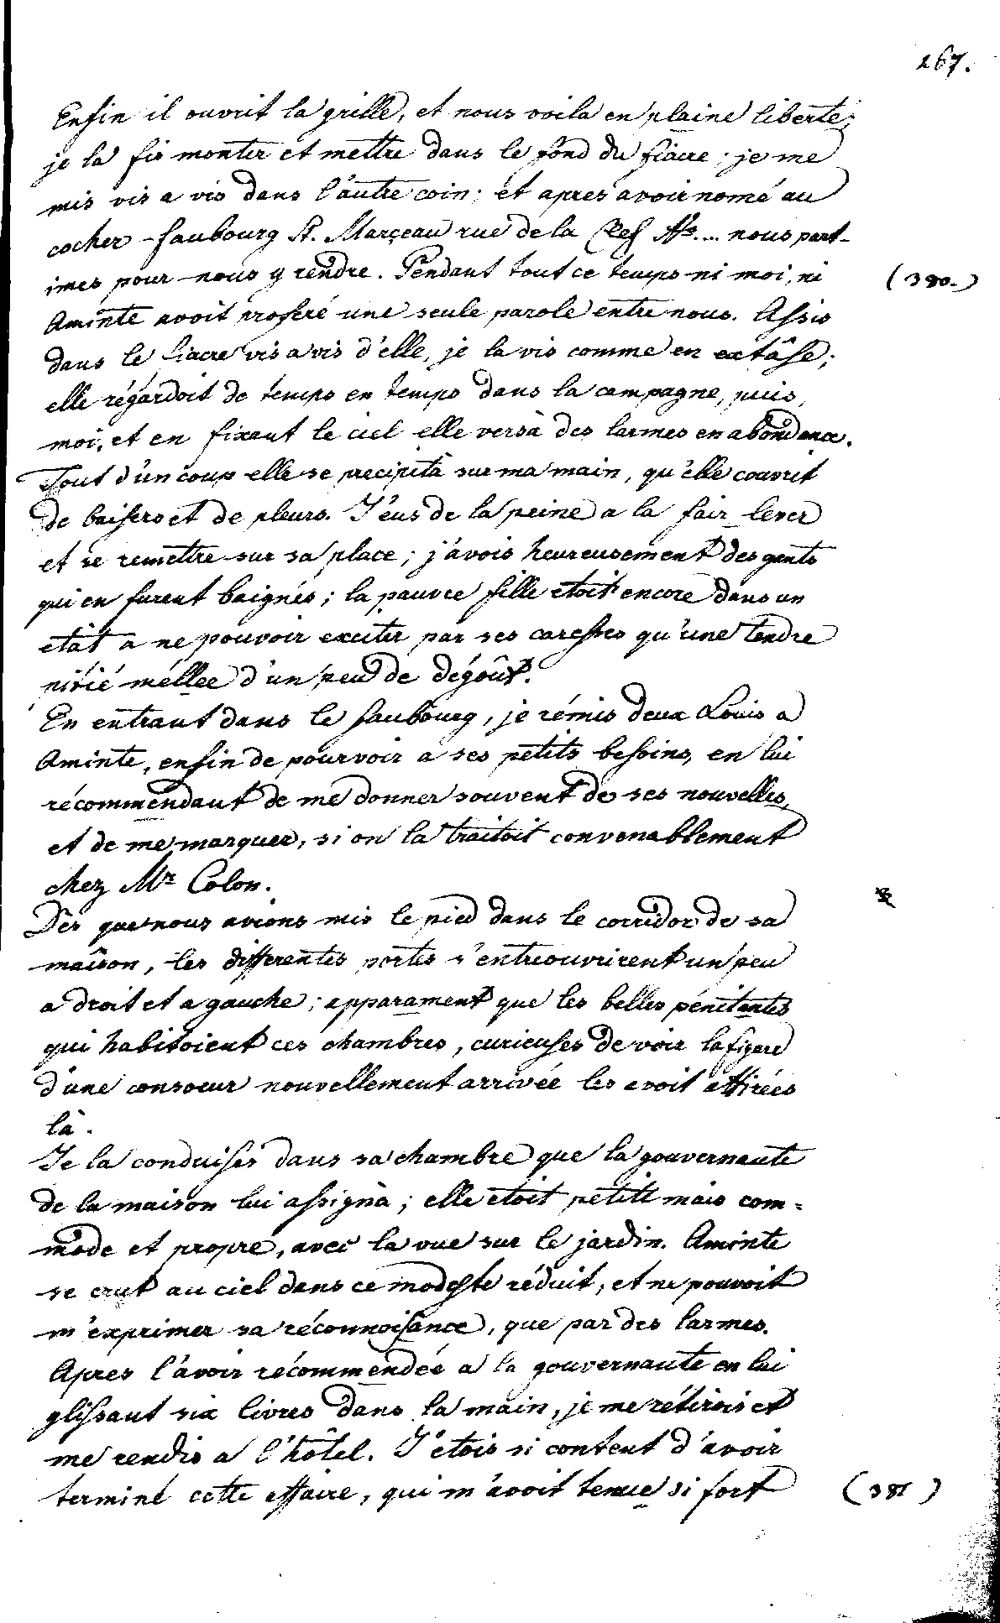 267.
Enfin il ouvrit la grille, et nous voila en plaine liberté;
je la fis monter et mettre dans le fond du fiacre; je me
mis vis a vis dans l'autre coin; et apres avoir nomé au
cocher faubourg St. Marçeau rue de la Clef No.... nous part-
imes pour nous y rendre. Pendant tout ce temps ni moi, ni
(380.)
Aminte avoit proferé une seule parole entre nous. Assis
dans le fiacre vis a vis d'elle, je la vis comme en extâse;
elle régardoit de temps en temps dans la campagne, puis,
moi, et en fixant le ciel elle versa des larmes en abondance.
Tout d'un coup elle se precipita sur ma main, qu'elle couvrit
de baisers et de pleurs. J'eus de la peine a la fair lever
et se remettre sur sa place; j'avois heureusement des gants
qui en furent baignés; la pauvre fille etoit encore dans un
etat a ne pouvoir exciter par ses caresses qu'une tendre
pitié méllee d'un peu de dégoût.
En entrant dans le faubourg, je rémis deux Louis a
Aminte, enfin de pourvoir a ses petits besoins, en lui
récommendant de me donner souvent de ses nouvelles,
et de me marquer, si on la traitoit convenablement
chez Mr Colon.
Dès que nous avions mis le pied dans le corridor de sa
maîson, les differentes portes s'entreouvrirent un peu
a droit et a gauche; apparament que les belles pénitentes
qui habitoient ces chambres, curieuses de voir la figure
d'une consoeur nouvellement arrivée les avoit attirées
là.
Je la conduisès dans sa chambre que la gouvernante
de la maison lui assigna; elle etoit petite mais com-
mode et propre, avec la vue sur le jardin. Aminte
se crut au ciel dans ce modeste réduit, et ne pouvoit
m'exprimer sa réconnoissance, que par des larmes.
Apres l'avoir récommendée a la gouvernante en lui
glissant six livres dans la main, je me rétirois et
me rendis a l'hôtel. J'etois si content d'avoir
terminé cette affaire, qui m'avoit tenue si fort
(381)